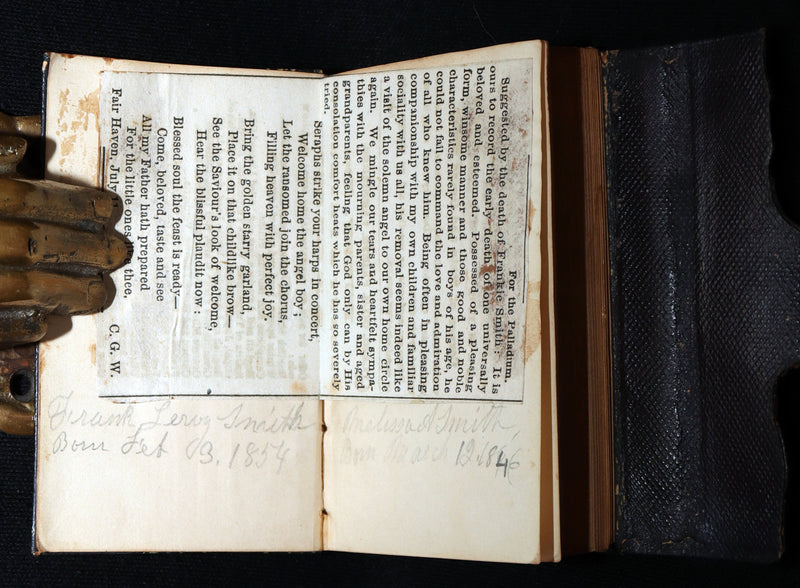 For the Palladium.
Suggested by the death of Frankie Smith: It is
ours to record the early death of one universally
beloved and esteemed. Possessed of a pleasing
form, winsome manner and those good and noble
characteristics rarely found in boys of his age, he
could not fail to command the love and admiration
of all who knew him. Being often in pleasing
companionship with my own children and familiar
sociality with us all, his removal seems indeed like
a visit of the solemn angel to our own home circle
again. We mingle our tears and heartfelt sympa-
thies with the mourning parents, sister and aged
grandparents, feeling that God only can by His
consolation comfort heats which he has so severely
tried.
Seraphs strike your harps in concert,
Welcome home the angel boy;
Let the ransomed join the chorus,
Filling heaven with perfect joy.
Bring the golden starry garland,
Place it on that childlike brow—
See the Saviour's look of welcome,
Hear the blissful plaudit now:
Blessed soul the feast is ready—
Come, beloved, taste and see
All my Father hath prepared
For the little ones thee,
Fair Haven, July C. G. W.
Frank Leroy Smith
Born Feb 03, 1854
Melissa A Smith
Born March 12 1846